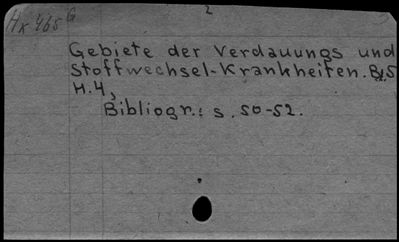 2
Hk 465 G
Gebiete der Verdauungs und
Stoffwechsel-Krankheiten. Bd. 5
H. 4,
Bibliogr.: s. 50-52.